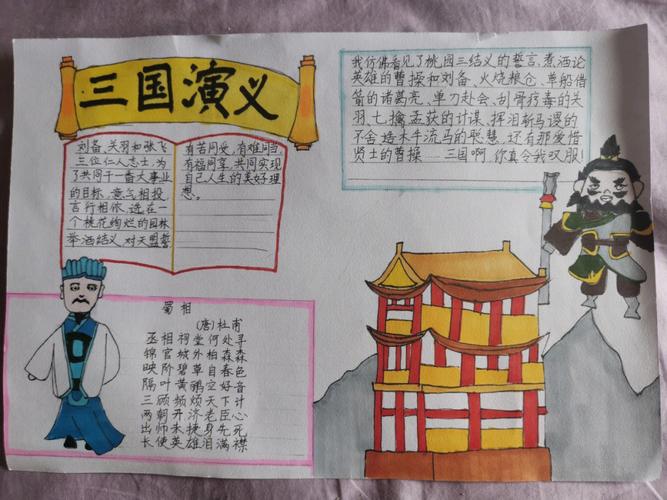 三国演义
刘备、关羽和张飞
三位仁人志士，为
了共同干一番大事业
的目标，意气相投
言行相依，选在一
个桃花绚烂的园林
举酒结义，对天盟誓
有苦同受，有难同当
有福同享，共同实现
自己人生的美好理
想。
我仿佛看见了桃园三结义的誓言，煮酒论
英雄的曹操和刘备、火烧粮仓、草船借
箭的诸葛亮、单刀赴会、刮骨疗毒的关
羽、七擒孟获的计谋、挥泪斩马谡的
不舍造木牛流马的聪慧，还有那爱惜
贤士的曹操……三国啊，你真令我叹服！
蜀相
(唐)杜甫
丞相祠堂何处寻
锦官城外柏森森
映阶碧草自春色
隔叶黄鹂空好音
三顾频烦天下计
两朝开济老臣心
出师未捷身先死
长使英雄泪满襟